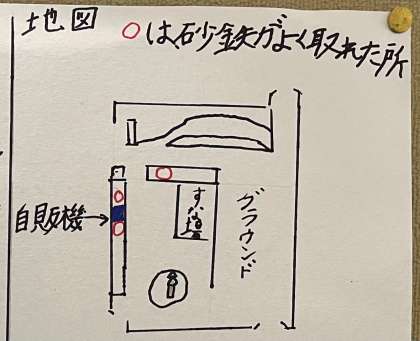 地図 ○は、砂鉄がよく取れた所
自販機→
グラウンド